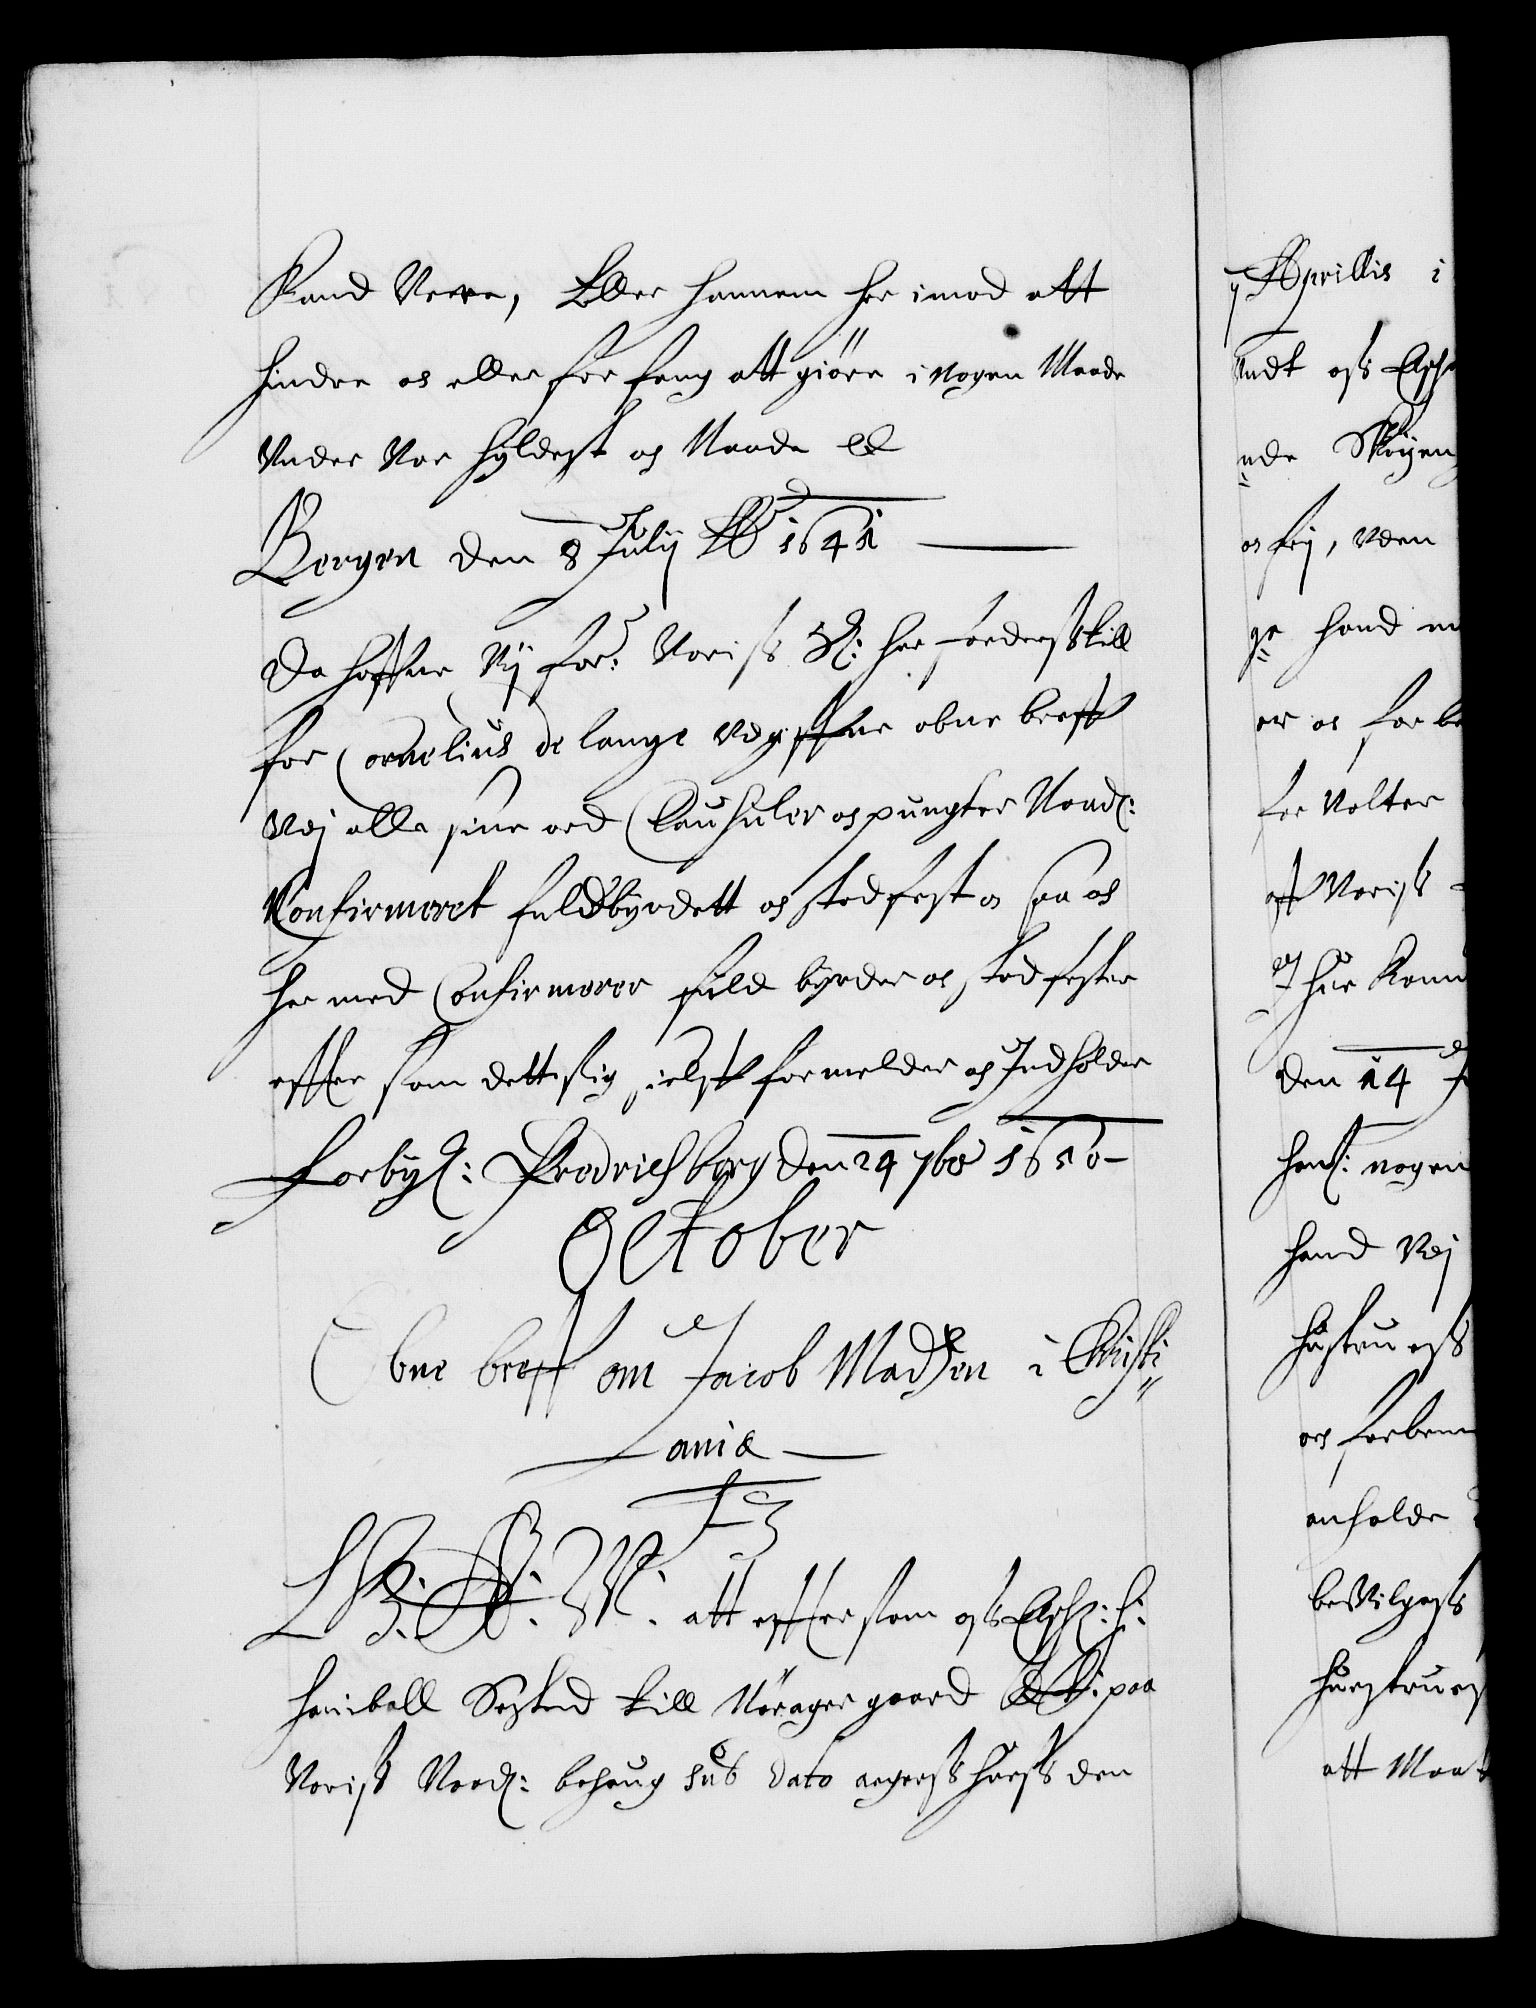 Kand Were, Eller hannem her imod att
hindre os eller forfang att giöre i nogen Maade
Vnder Vor hyldest os Naade etc
Bergen den 8 Julij Ao 1641
Da haffue Vij for: Voriss R: her forderss till
for Cornelius de lange Vdgiffne obne breff
Vdj alle sine ord Clausuler os pungter Naad:
Confirmeret fuldbyrdett os stadfest os saa os
her med Confirmerer fuld byrder os stadfester
effter som dett sig sielff formelder os Indholder
Forbyd: Fredrichsborg den 24 7br 1650
October
Obne breff om Jacob Madssen i Christi
ania
F 3
G: A: W: att effter som oss Elsk: h:
Haniball Sested till Nöragergaard R: paa
Voriss Naad: behaug sub dato Aggersshuess den
7 Aprillis i
undt oss Elsk
nde Skiöen
os frij, vden
ge hand m
er os forbe
for Volter
aff Voriss
J hue Kom
den 14 J
hand: nogen
hand Vdj
hustru ess
os forben
anholde
beVilgess
huestru es
att Maa